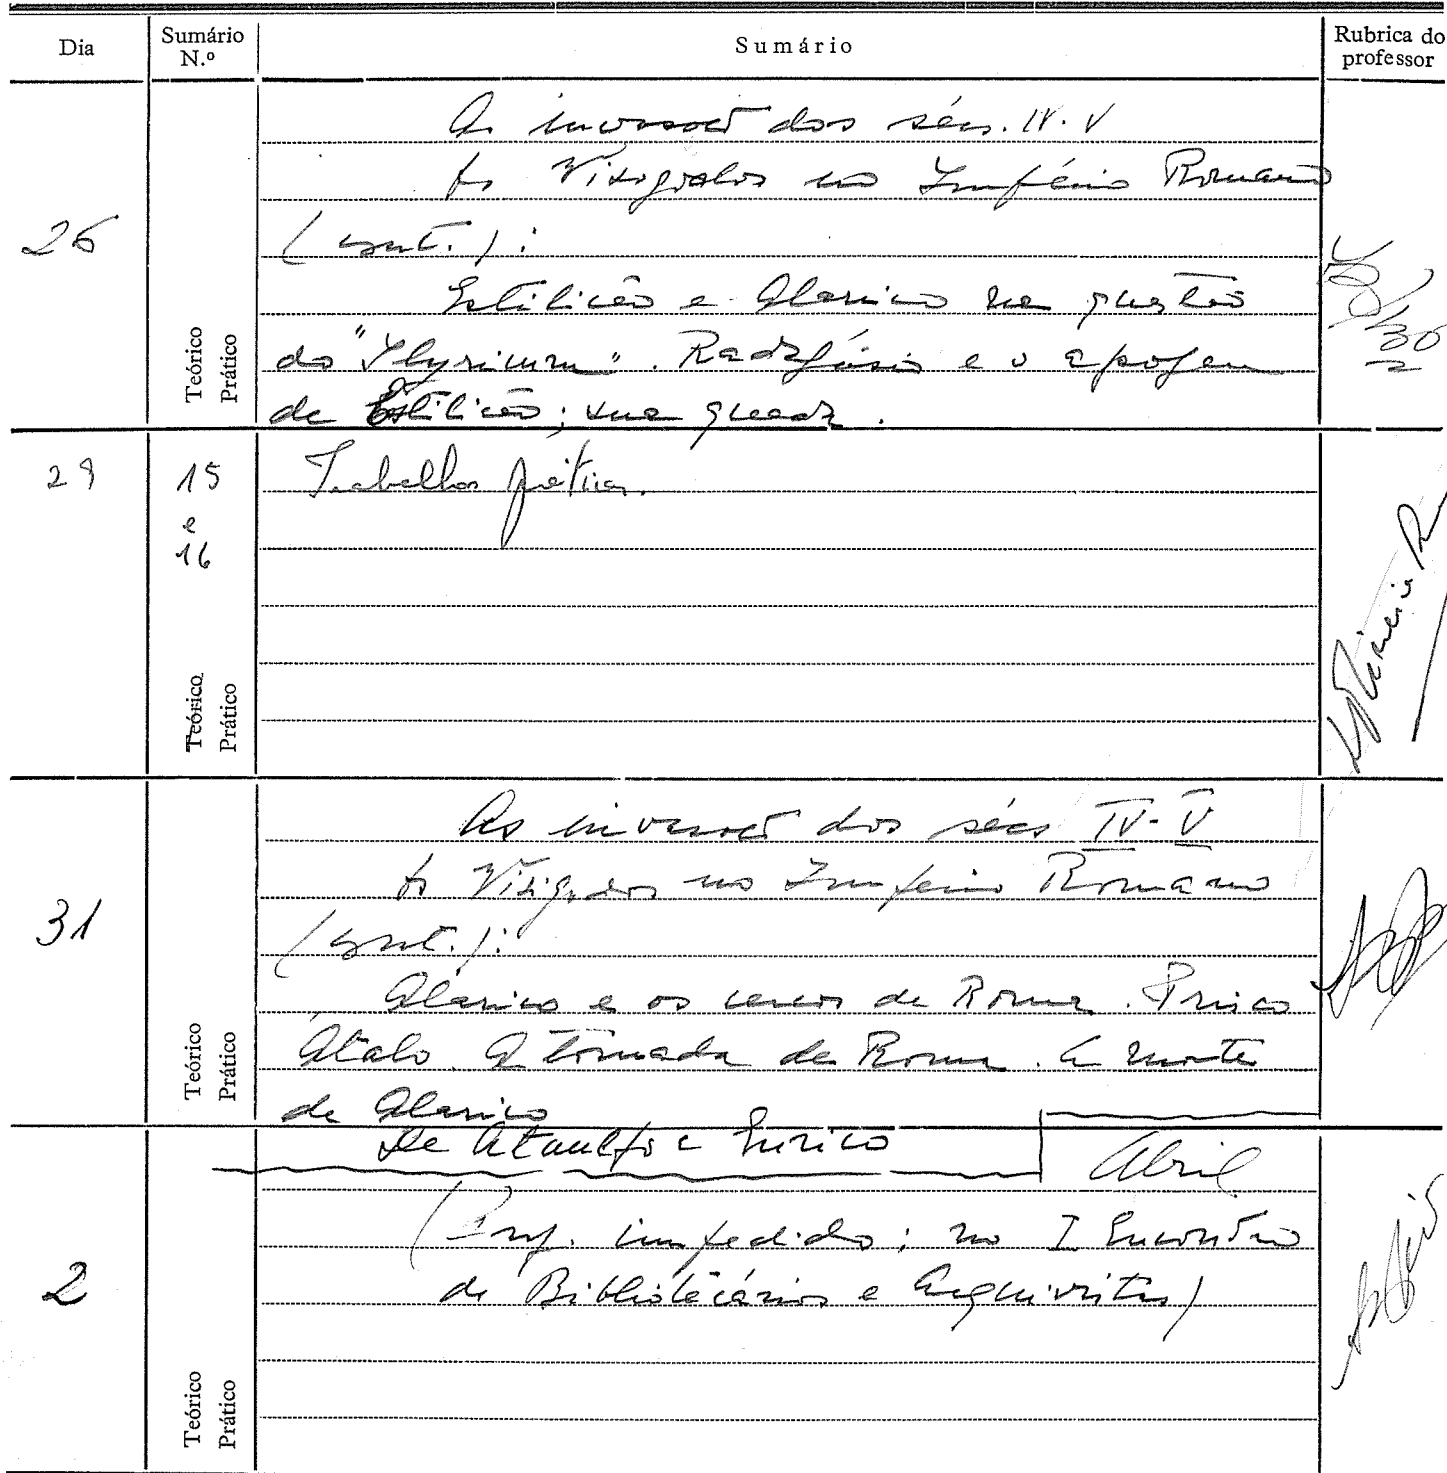 Dia Sumário N.º Sumário Rubrica do professor
26
As invasões dos sécs. IV-V
Os Visigodos no Império Romano
(cont.):
Estilicão e Alarico na questão
do "Illyricum". Radagásio e o apogeu
de Estilicão; sua queda.
Teórico
Prático
29
15
e
16
Trabalhos práticos.
Teórico
Prático
31
As invasões dos sécs IV-V
Os Visigodos no Império Romano
(cont.):
Alarico e os cercos de Roma. Prisco
Átalo. A tomada de Roma. A morte
de Alarico
De Ataulfo a Eurico
Teórico
Prático
Abril
2
(Prof. impedido; no I Encontro
de Bibliotecários e Arquivistas)
Teórico
Prático